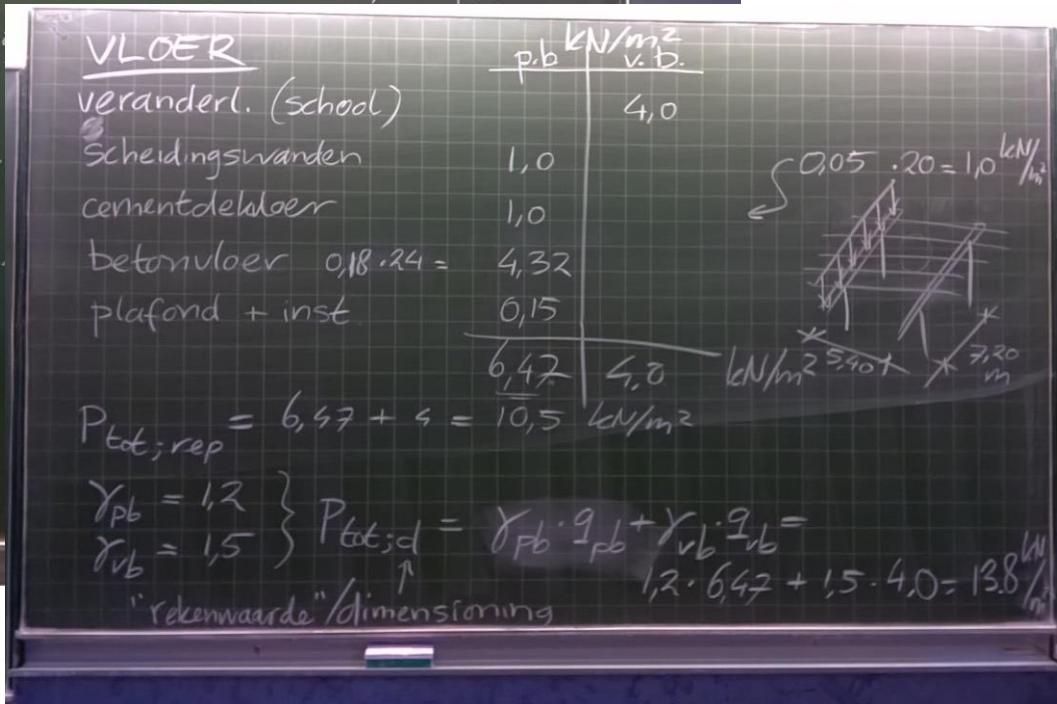 VLOER
kN/m²
p.b v.b.
veranderl. (school) 4,0
scheidingswanden 1,0
cementdekvloer 1,0
0,05 . 20 = 1,0 kN/m²
betonvloer 0,18 . 24 = 4,32
plafond + inst 0,15
6,47 4,0 kN/m²
5.40
7,20 m
Ptot;rep = 6,47 + 4 = 10,5 kN/m²
γpb = 1,2
γvb = 1,5
} Ptot;d = γpb . qpb + γvb . qvb =
1,2 . 6,47 + 1,5 . 4,0 = 13.8 kN/m²
↑
"rekenwaarde"/dimensioning